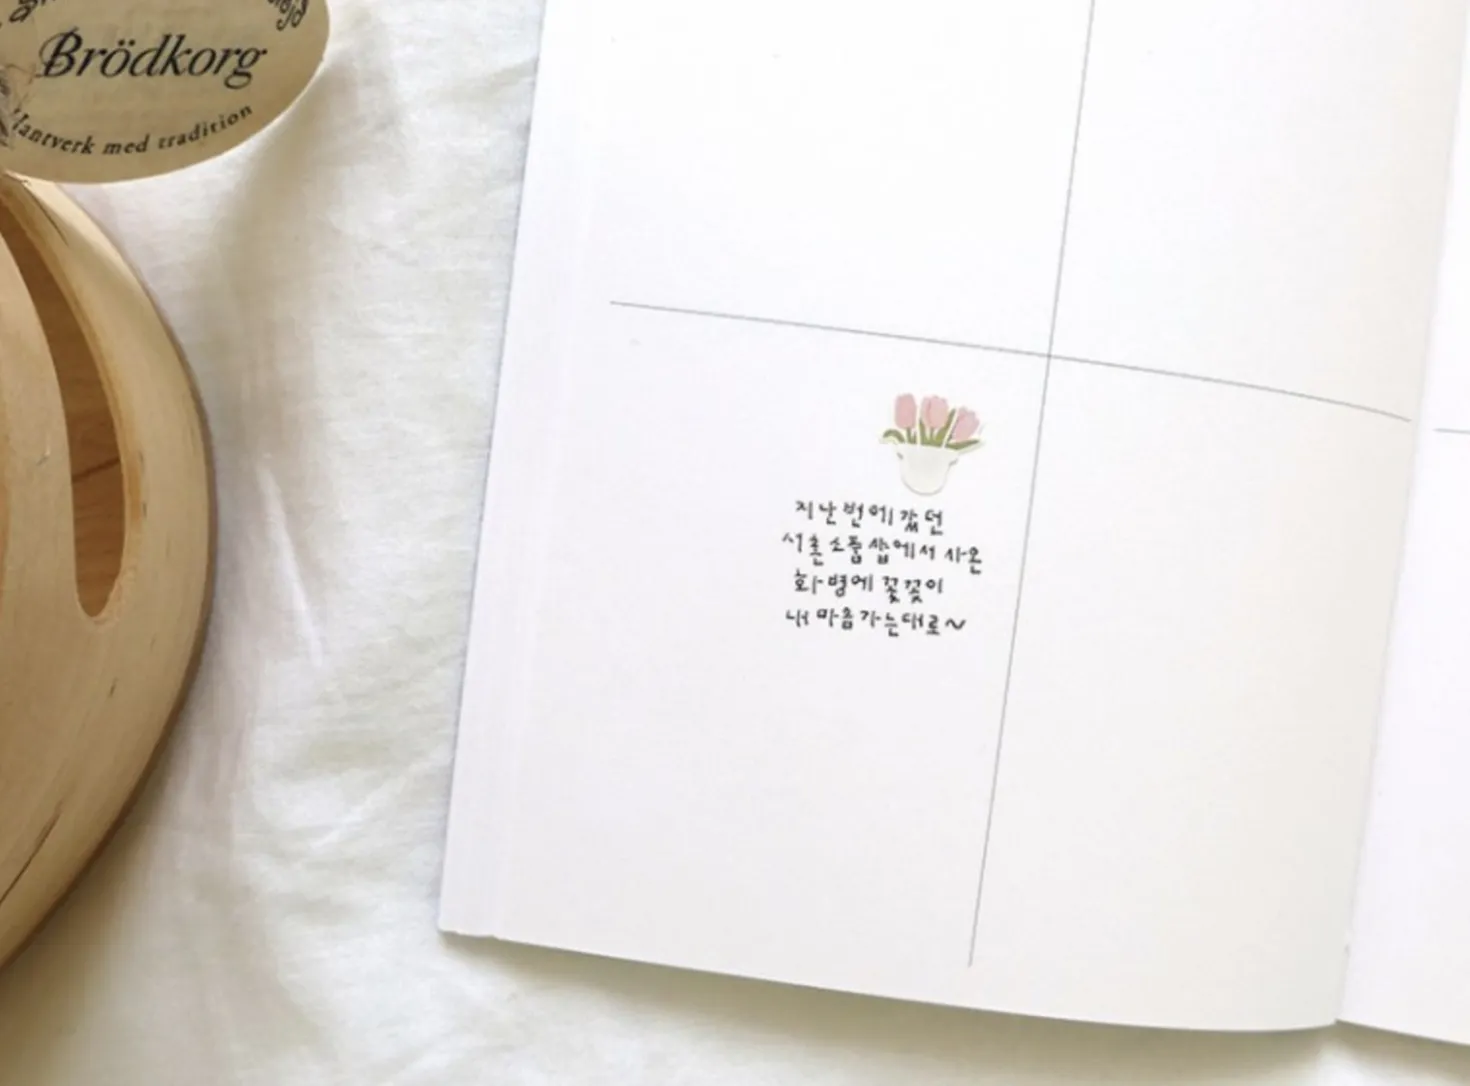 Brödkorg
Hantverk med tradition
지난번에 갔던
서촌 소품샵에서 사온
화병에 꽃꽂이
내 마음가는대로~